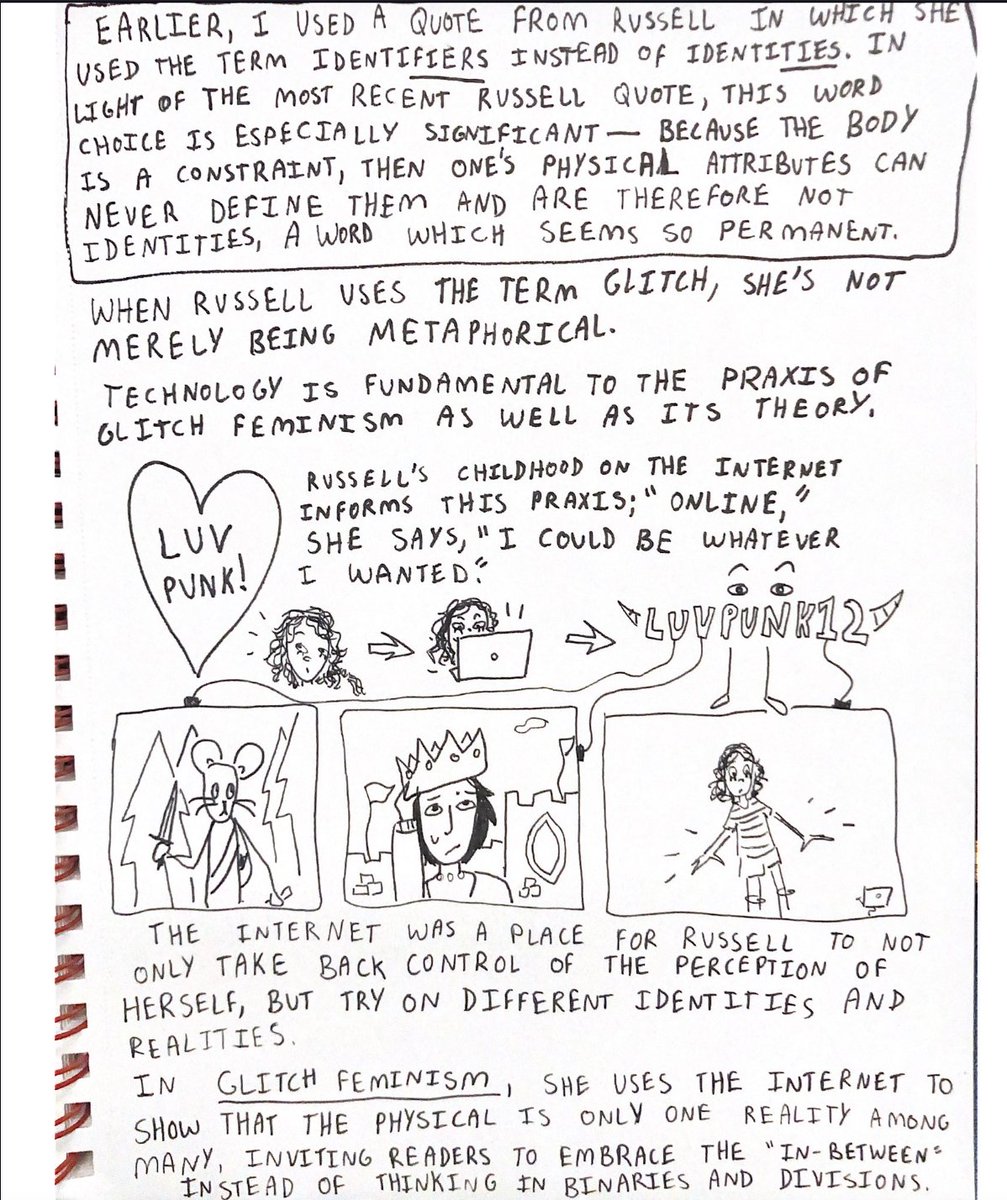 EARLIER, I USED A QUOTE FROM RUSSELL IN WHICH SHE
USED THE TERM IDENTIFIERS INSTEAD OF IDENTITIES. IN
LIGHT OF THE MOST RECENT RUSSELL QUOTE, THIS WORD
CHOICE IS ESPECIALLY SIGNIFICANT — BECAUSE THE BODY
IS A CONSTRAINT, THEN ONE'S PHYSICAL ATTRIBUTES CAN
NEVER DEFINE THEM AND ARE THEREFORE NOT
IDENTITIES, A WORD WHICH SEEMS SO PERMANENT.
WHEN RUSSELL USES THE TERM GLITCH, SHE'S NOT
MERELY BEING METAPHORICAL.
TECHNOLOGY IS FUNDAMENTAL TO THE PRAXIS OF
GLITCH FEMINISM AS WELL AS ITS THEORY.
LUV
PUNK!
RUSSELL'S CHILDHOOD ON THE INTERNET
INFORMS THIS PRAXIS; "ONLINE,"
SHE SAYS, "I COULD BE WHATEVER
I WANTED."
LUVPUNK12
THE INTERNET WAS A PLACE FOR RUSSELL TO NOT
ONLY TAKE BACK CONTROL OF THE PERCEPTION OF
HERSELF, BUT TRY ON DIFFERENT IDENTITIES AND
REALITIES.
IN GLITCH FEMINISM, SHE USES THE INTERNET TO
SHOW THAT THE PHYSICAL IS ONLY ONE REALITY AMONG
MANY, INVITING READERS TO EMBRACE THE "IN-BETWEEN"
INSTEAD OF THINKING IN BINARIES AND DIVISIONS.